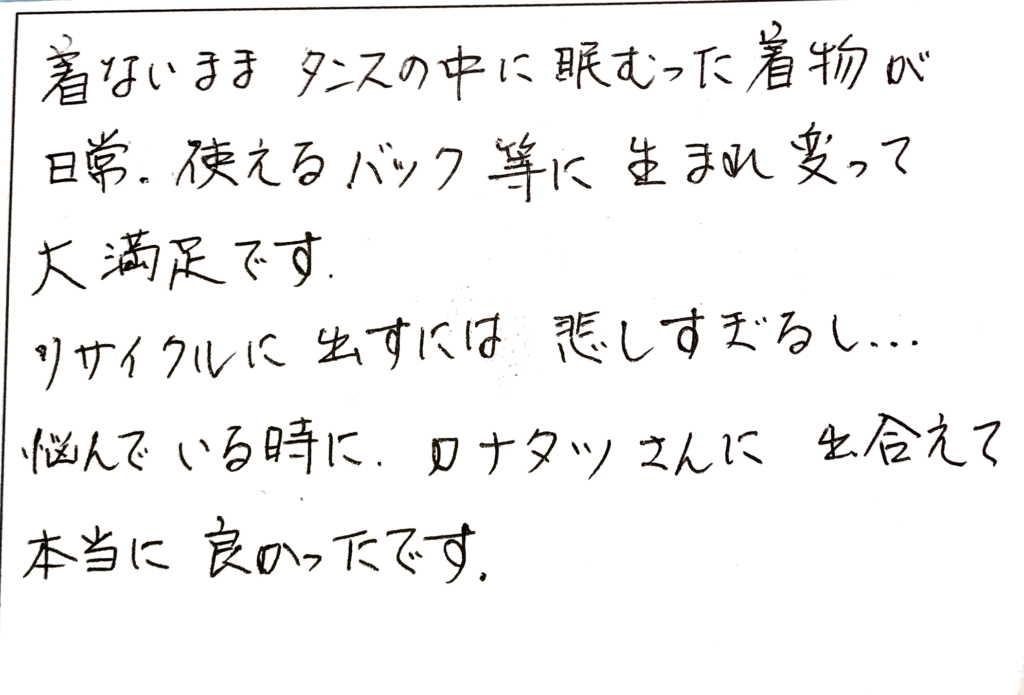 着ないまま タンスの中に眠むった着物が
日常. 使えるバック 等に 生まれ変って
大満足です.
リサイクルに 出すには 悲しすぎるし...
悩んでいる時に. ロナタツさんに 出合えて
本当に 良かったです.